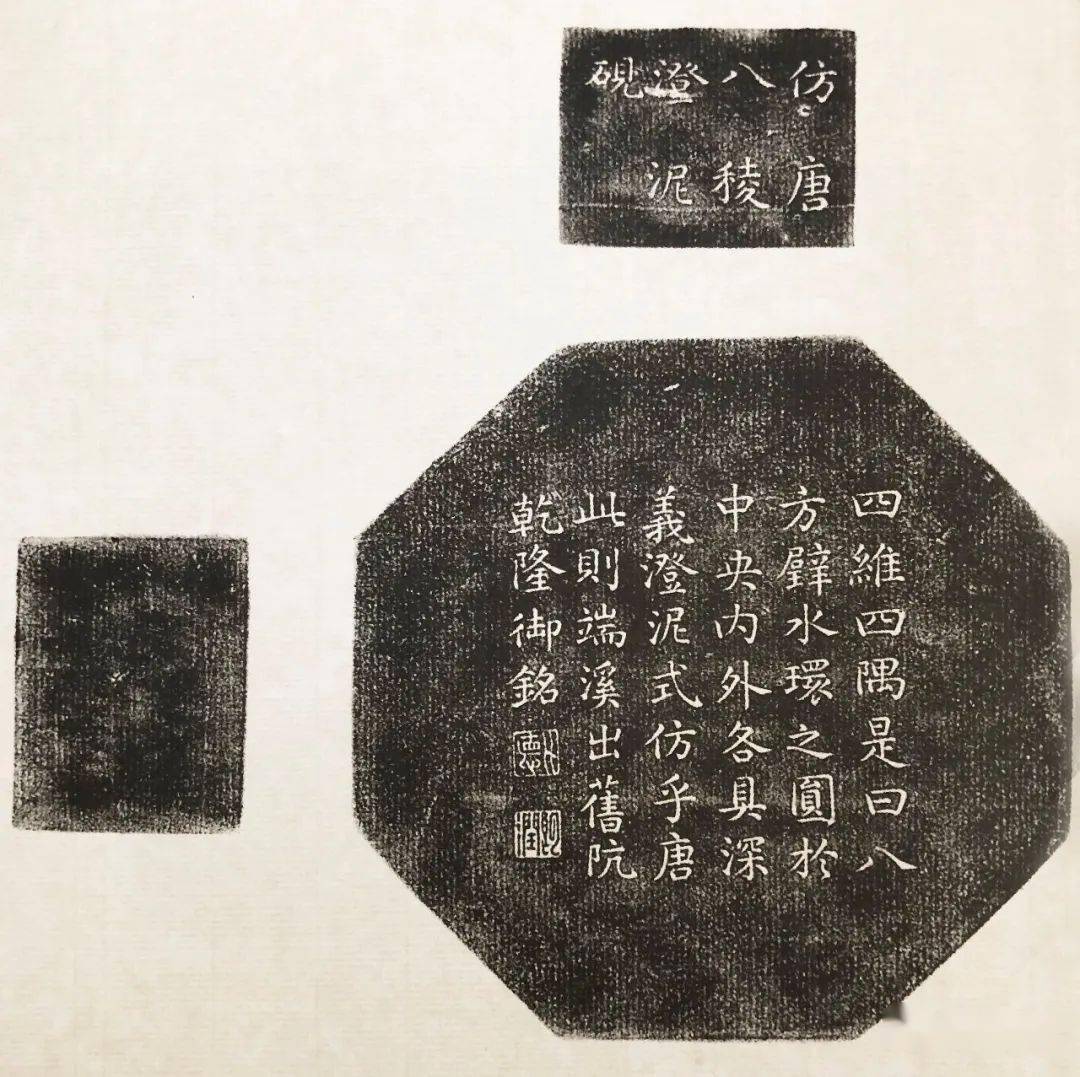 仿唐
八稜
澄泥
硯
四維四隅是曰八
方璧水環之圓於
中央内外各具深
義澄泥式仿乎唐
此則端溪出舊阬
乾隆御銘
比德
朗潤